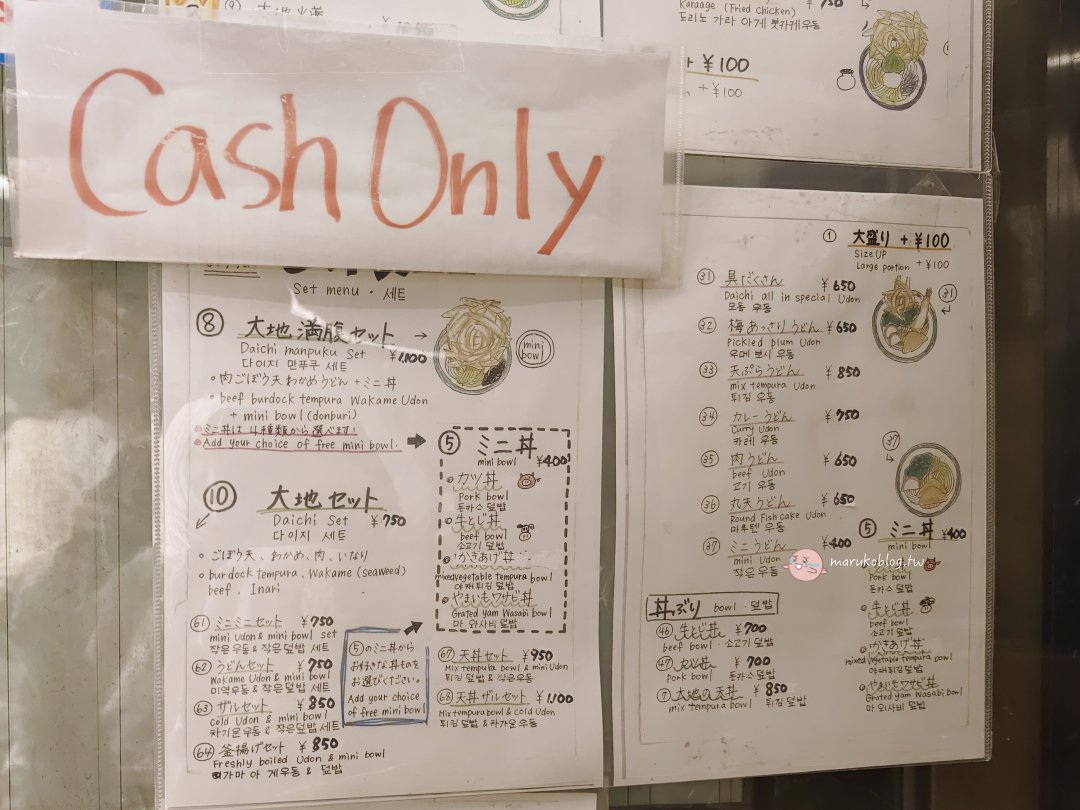 Cash Only
(9) 大地
Karaage (Fried Chicken) ¥750
¥100
+ ¥100
Set menu · 세트
⑧ 大地満腹セット →
Daichi manpuku Set ¥1,100
다이지 만푸쿠 세트
mini bowl
。肉ごぼう天わかめうどん + ミニ丼
。beef burdock tempura Wakame Udon
+ mini bowl (donburi)
ミニ丼は4種類から選べます!
Add your choice of free mini bowl.
⑤ ミニ丼
mini bowl ¥400
カツ丼
Pork bowl
돈카소 덮밥
牛とじ丼
beef bowl
소고기 덮밥
かきあげ丼
mixed vegetable tempura bowl
야채튀김 덮밥
やまいもワサビ丼
Grated yam Wasabi bowl
마 와사비 덮밥
⑩ 大地セット
Daichi Set ¥750
다이지 세트
。ごぼう天、わかめ、肉、いなり
。burdock tempura, Wakame (seaweed)
beef, Inari
61 ミニミニセット ¥750
mini Udon & mini bowl set
작은우동 & 작은덮밥 세트
62 うどんセット ¥750
Wakame Udon & mini bowl
미역우동 & 작은덮밥 세트
63 ザルセット ¥850
cold Udon & mini bowl
차기운우동 & 작은덮밥 세트
64 釜揚げセット ¥850
Freshly boiled Udon & mini bowl
가마 아 게우동 & 덮밥
⑤のミニ丼から
お好きな丼を
お選びください。
Add your choice
of free mini bowl
67 天丼セット ¥950
Mix tempura bowl & mini Udon
튀김 덮밥 & 작은우동
68 天丼ザルセット ¥1,100
Mix tempura bowl & cold Udon
튀김 덮밥 & 차가운 우동
① 大盛り + ¥100
Size UP
Large portion + ¥100
31 具だくさん ¥650
Daichi all in special Udon
모둠 우동
31
32 梅あっさりうどん ¥650
Pickled plum Udon
우메 봇시 우동
33 天ぷらうどん ¥850
mix tempura Udon
튀김 우동
34 カレーうどん ¥750
Curry Udon
카레 우동
35 肉うどん ¥650
beef Udon
고기 우동
37
36 丸天うどん ¥650
Round Fish cake Udon
마루텐 우동
37 ミニうどん ¥400
mini Udon
작은 우동
marukoblog.tw
丼ぶり bowl · 덮밥
46 牛とじ丼 ¥700
beef bowl · 소고기 덮밥
47 カツ丼 ¥700
Pork bowl 돈카소 덮밥
⑦ 大地の天丼 ¥850
mix tempura bowl 튀김 덮밥
⑤ ミニ丼 ¥400
mini bowl
Pork bowl
돈카소 덮밥
牛とじ丼
beef bowl
소고기 덮밥
かきあげ丼
mixed vegetable tempura bowl
야채튀김 덮밥
やまいもワサビ丼
Grated yam Wasabi bowl
마 와사비 덮밥